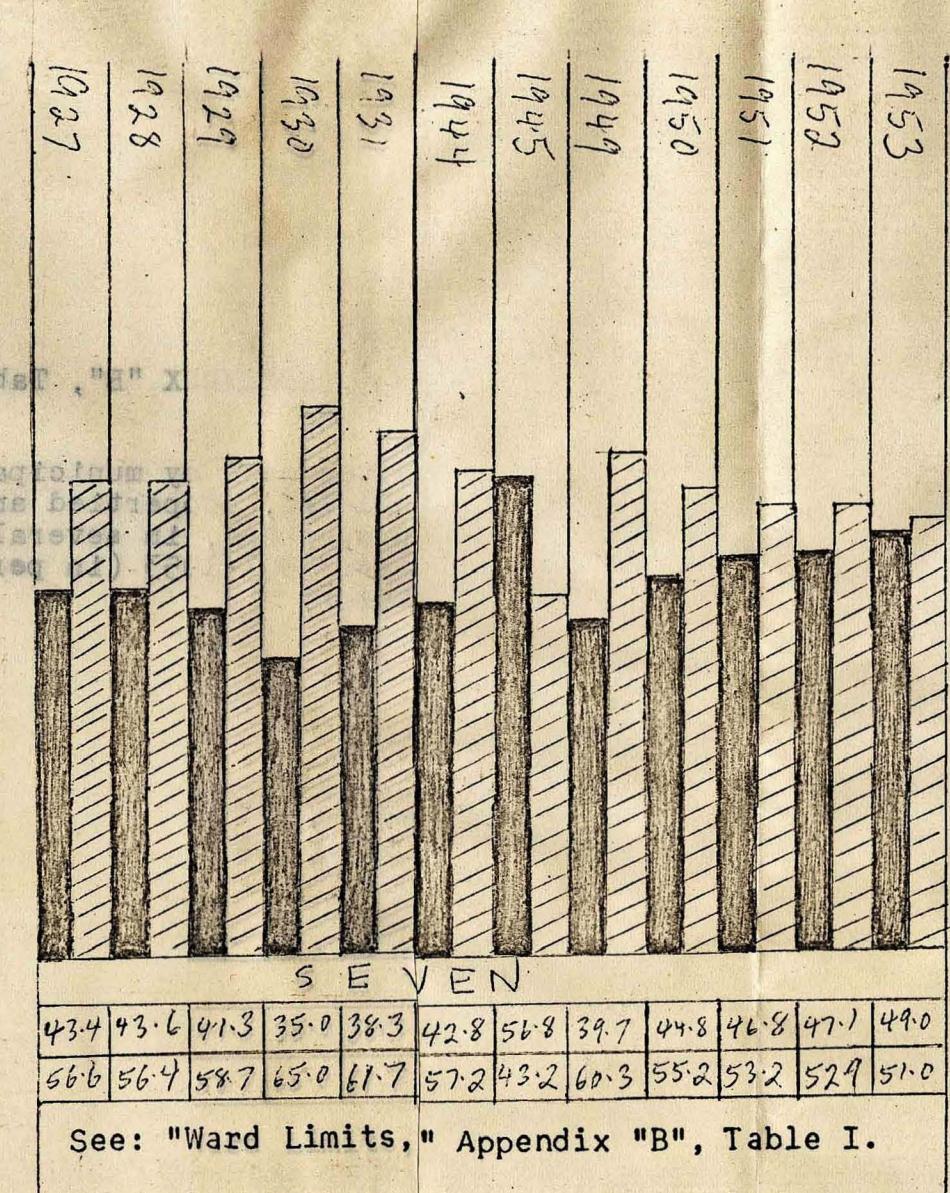 1927 1928 1929 1930 1931 1944 1945 1949 1950 1951 1952 1953
X "B", Tab
y municipa
in several
(in per
SEVEN
43.4 43.6 41.3 35.0 38.3 42.8 56.8 39.7 44.8 46.8 47.1 49.0
56.6 56.4 58.7 65.0 61.7 57.2 43.2 60.3 55.2 53.2 52.9 51.0
See: "Ward Limits," Appendix "B", Table I.